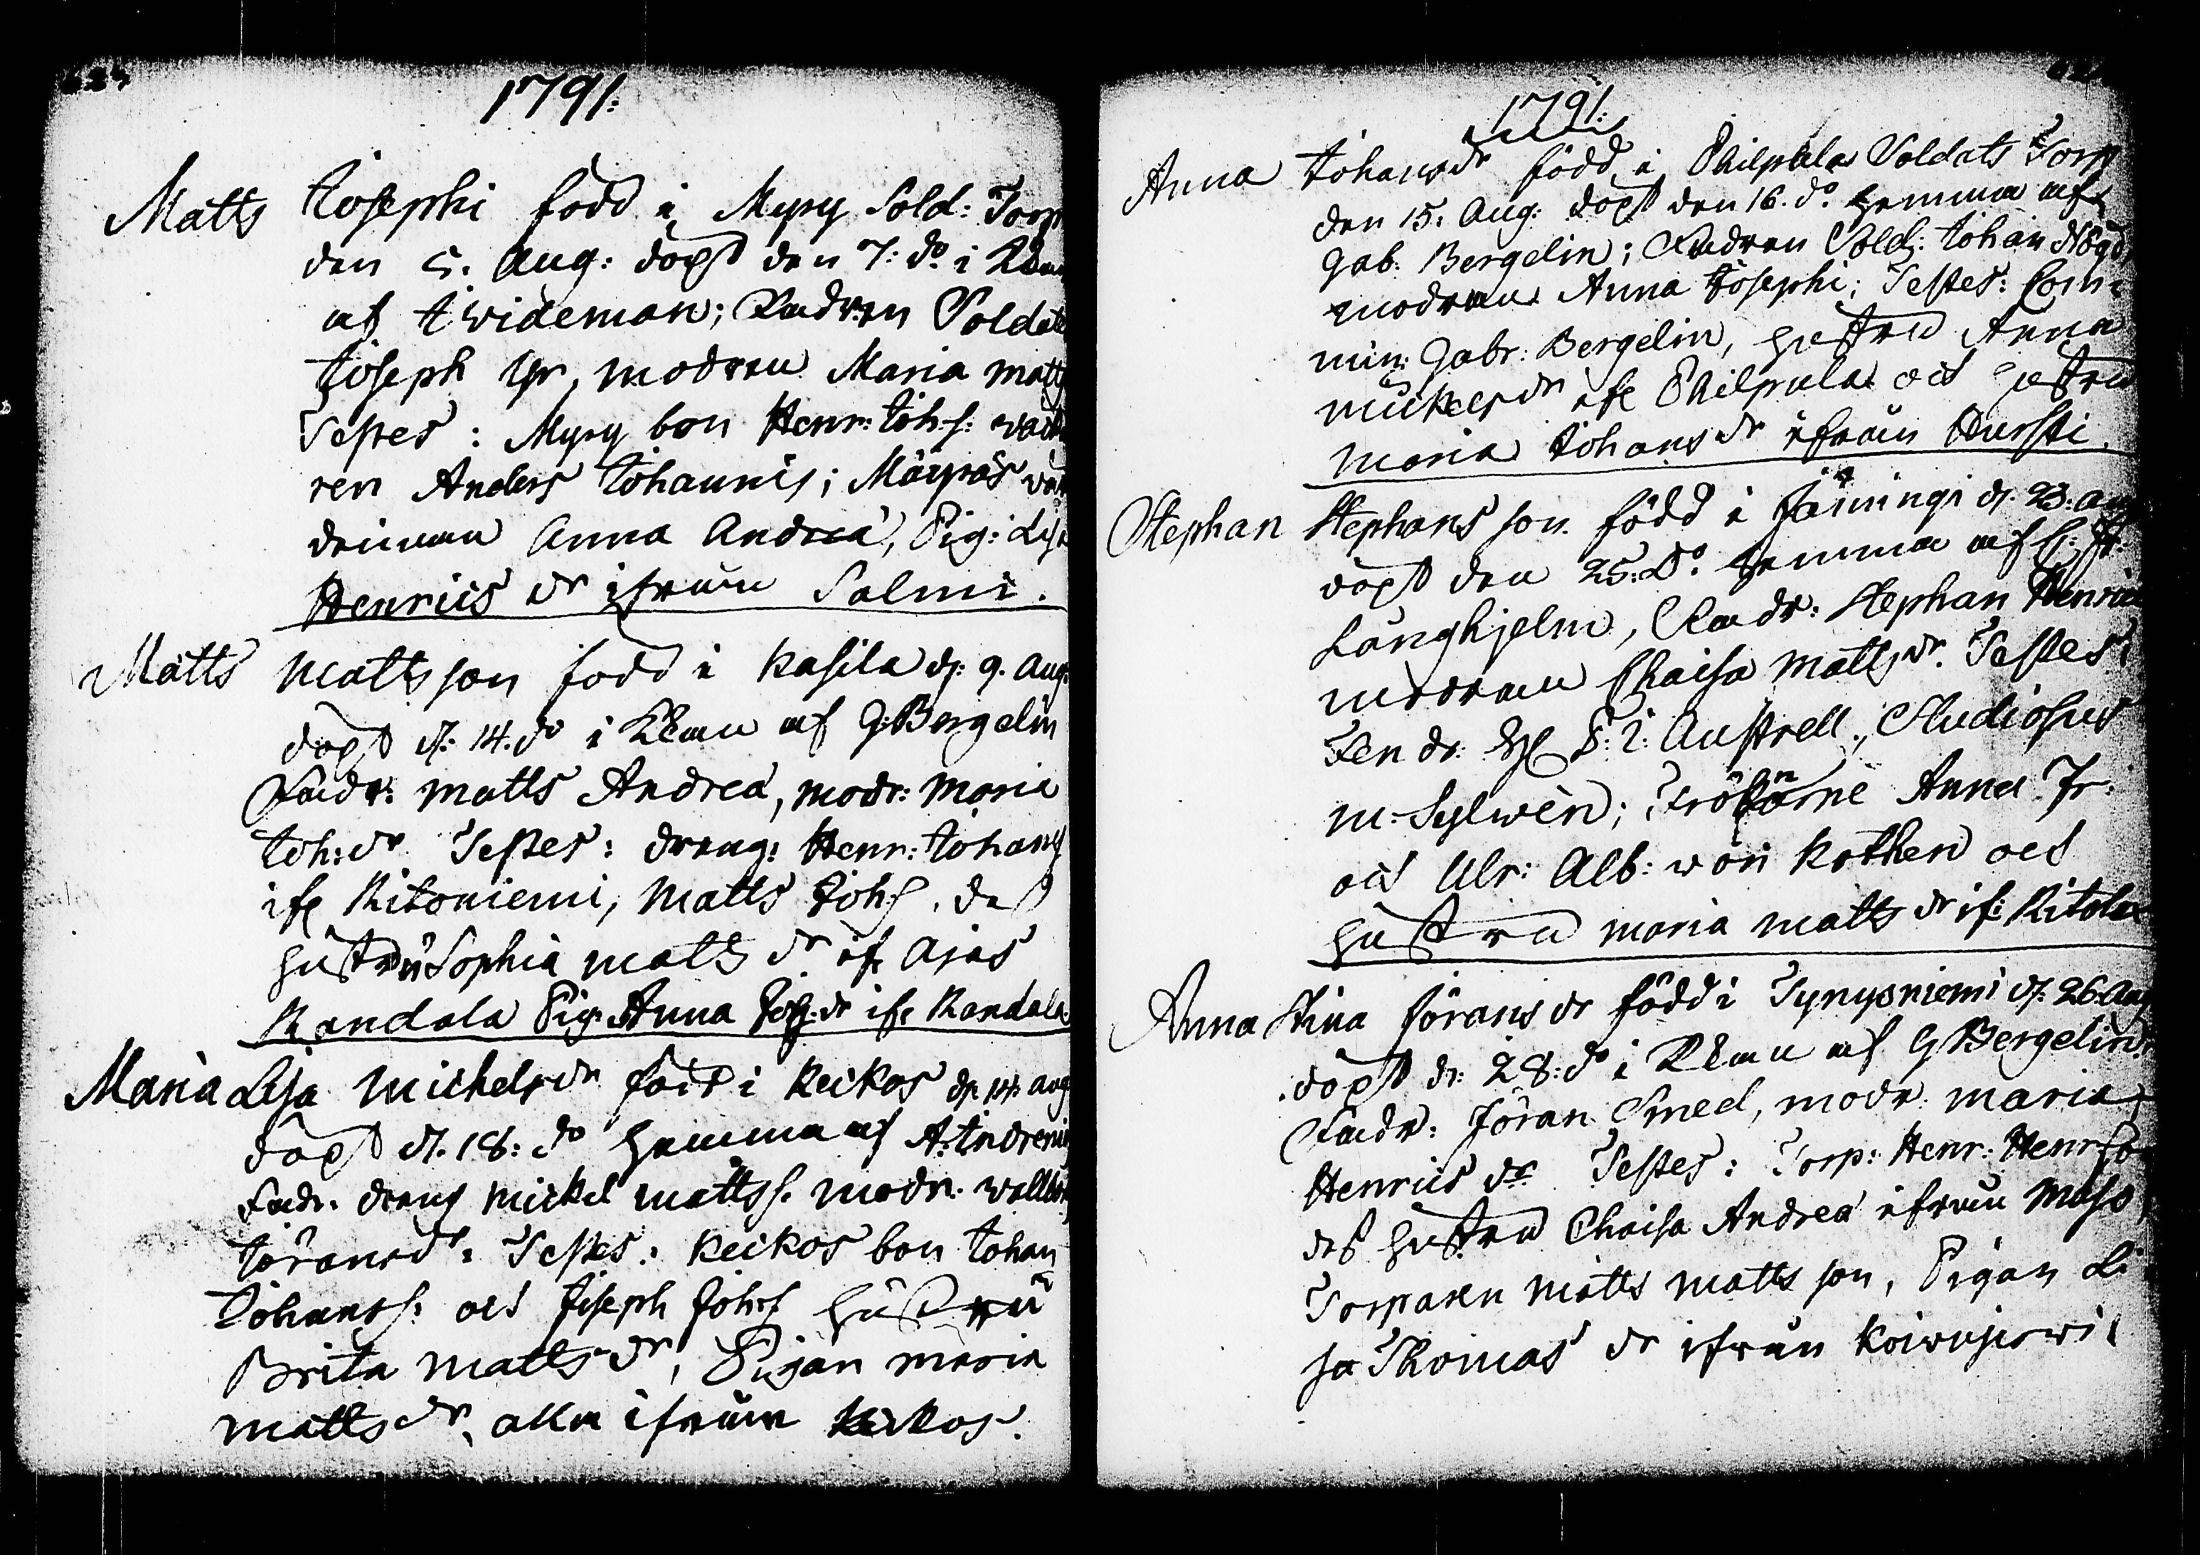 1791:
Matts Josephi född i Myry Sold: Torp
den 5. Aug: döpt den 7: do i
af J Wideman; Fadren Soldat
Joseph Yr, modren Maria Matts
Testes: Myry bon Henr: Johs:
ren Anders Johannis; Märpäs
deinnan Anna Andreæ, Pig: Lisa
Henrics dr ifrån Salmi.
Matts Mattsson född i Kasila d: 9. Aug:
döpt d: 14. do i af G Bergelin
Fadr: Matts Andreæ, modr: Maria
Joh: dr Testes: dreng: Henr: Johans
ifr Ritoniemi, Matts Johs. des
hustru Sophia Matts dr ifr Ajas
Kandala Pig: Anna Joh: dr ifr Kandala
Maria Lisa Michels dr född i Keikos d: 14. Aug
döpt d. 18: do hemma af A: Indrenius
Fadr. dreng Mickel Mattss. modr. Wallbor
Jörans dr: Testes: Keikos bon Johan
Johanss: och Joseph Johs hustru
Brita Matts dr, Pigan Maria
Matts dr, alla ifrån Keikos.
1791:
Anna Johans dr född i Philpula Soldats Torp
den 15. Aug: döpt den 16. do hemma af
Gab: Bergelin; Fadren Sold: Johan Nögd
modren Anna Josephi; Testes: Com-
min: Gabr: Bergelin, hustru Anna
Mickels dr ifr Philpula och hustru
Maria Johans dr ifrån Hursti.
Stephan Stephans son född i Jäiningi d: 23: Aug
döpt den 25: do hemma af
Långhjelm, Fadr: Stephan Henrics
modren Chaisa Matts dr. Testes:
Fendr: H: Austrell, Studiosus
M: Sylwèn; Fröknarne Anna Fr.
och Ulr: Alb: von Kothen och
hustru Maria Matts dr if: Ritola
Anna Stina Jörans dr född i Tynysniemi d: 26. Aug
döpt d: 28: do i af G Bergelin
Fadr: Jöran Smed, modr: Maria
Henrics dr Testes: Torp: Henr: Henrsson
des hustru Chaisa Andreæ ifrån Maso,
Torparen Matts Mattsson, Pigan Li-
sa Thomas dr ifrån Koiwujerwi